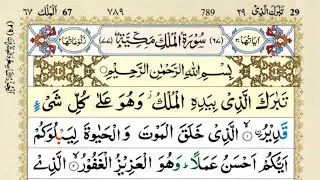 الملك ٦٧ 67 ٧٨٩ 789 تبرك الذي ٢٩ 29
اٰيَاتُهَا ٣٠ (٦٧) سُوْرَةُ الْمُلْكِ مَكِّيَّةٌ (٧٧)
بِسْمِ اللهِ الرَّحْمٰنِ الرَّحِيْمِ
تَبٰرَكَ الَّذِيْ بِيَدِهِ الْمُلْكُ وَهُوَ عَلٰى كُلِّ شَيْءٍ
قَدِيْرٌ ۙ﴿۱﴾ الَّذِيْ خَلَقَ الْمَوْتَ وَالْحَيٰوةَ لِيَبْلُوَكُمْ
اَيُّكُمْ اَحْسَنُ عَمَلًا ؕ وَهُوَ الْعَزِيْزُ الْغَفُوْرُ ۙ﴿۲﴾ الَّذِيْ